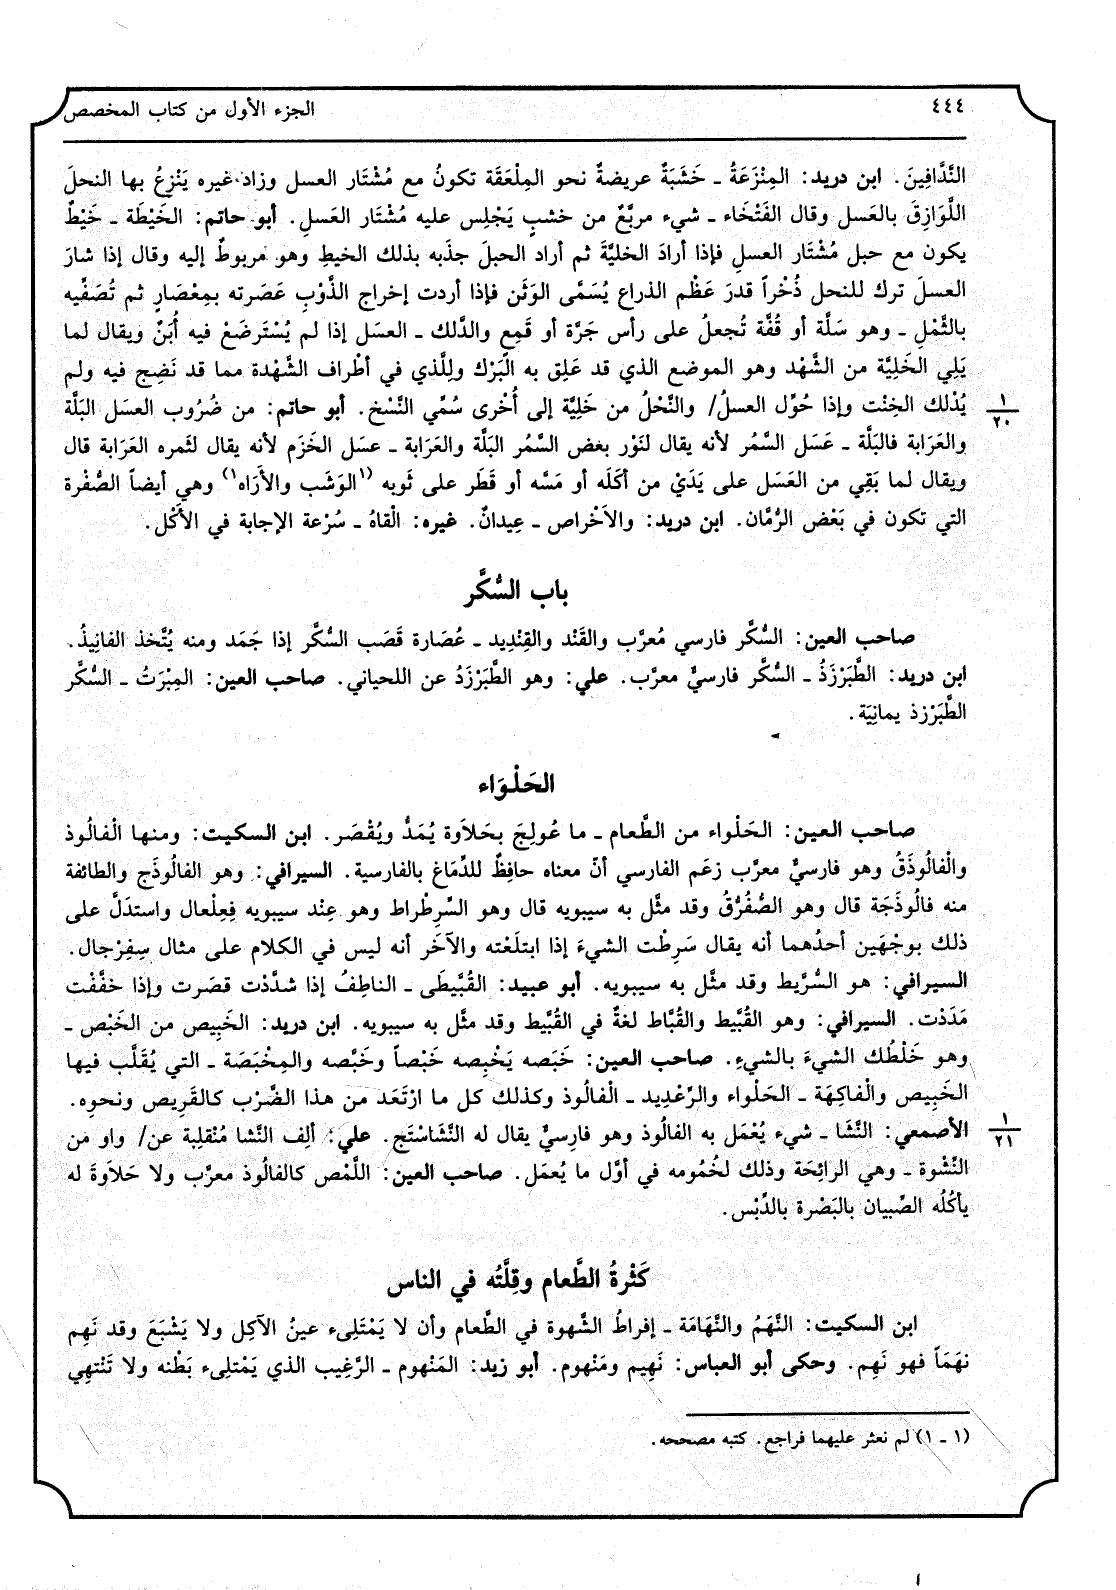 ٤٤٤
الجزء الأول من كتاب المخصص
النَّدَّافِينَ. ابن دريد: المِنْزَعَةُ ـ خَشَبَةٌ عريضةٌ نحو المِلْعَقَة تكونُ مع مُشْتَار العسل وزاد غيره يَنْزِعُ بها النحلَ
اللَّوَازِقَ بالعَسل وقال الفَتْخَاء ـ شيء مربَّعٌ من خشبٍ يَجْلِس عليه مُشْتَار العَسلِ. أبو حاتم: الخَيْطَة ـ خَيْطٌ
يكون مع حبل مُشْتَار العسلِ فإذا أرادَ الخليَّةَ ثم أراد الحبلَ جذَبه بذلك الخيطِ وهو مربوطٌ إليه وقال إذا شارَ
العسلَ ترك للنحل ذُخْراً قدرَ عَظْم الذراع يُسَمَّى الوَثَن فإذا أردت إخراج الذَّوْبِ عَصَرته بمِعْصَارٍ ثم تُصَفِّيه
بالثَّمْلِ ـ وهو سَلَّة أو قُفَّة تُجعلُ على رأس جَرَّة أو قَمِع والدَّلك ـ العسَل إذا لم يُسْتَرضَعْ فيه أُبَنْ ويقال لما
يَلِي الخَلِيَّة من الشَّهْد وهو الموضع الذي قد عَلِق به البَرْك ولِلَّذي في أطْراف الشَّهْدة مما قد نَضِج فيه ولم
يُدْلك الخِنْت وإذا حُوِّل العسلُ/ والنَّحْلُ من خَلِيَّة إلى أُخْرى سُمِّي النَّسْخ. أبو حاتم: من ضُروب العسَل البَلَّة
١
٢٠
والعَرَابة فالبَلَّة ـ عَسَل السَّمُر لأنه يقال لنَوْر بغض السَّمُر البَلَّة والعَرَابة ـ عسَل الخَزَم لأنه يقال لثَمره العَرَابة قال
ويقال لما بَقِي من العَسَل على يَدَيْ من أكَلَه أو مَسَّه أو قَطَر على ثَوبه (١الوَشَب والأَرَاه١) وهي أيضاً الصُّفْرة
التي تكون في بَعْض الرُّمَّان. ابن دريد: والأَخْراص ـ عِيدانٌ. غيره: الْقاهُ ـ سُرْعة الإجابة في الأَكْل.
باب السُّكَّر
صاحب العين: السُّكَّر فارسي مُعرَّب والقَنْد والقِنْدِيد ـ عُصَارة قَصَب السُّكَّر إذا جَمَد ومنه يُتَّخذ الفانِيذُ.
ابن دريد: الطَّبَرْزَذُ ـ السُّكَّر فارسيٌّ معرَّب. علي: وهو الطَّبَرْزَدُ عن اللحياني. صاحب العين: المِبْرَتُ ـ السُّكَّر
الطَّبَرْزذ يمانِيَة.
الحَلْوَاء
صاحب العين: الحَلْواء من الطَّعام ـ ما عُولِجَ بحَلاَوة يُمَدُّ ويُقْصَر. ابن السكيت: ومنها الْفالُوذ
والْفالُوذَقُ وهو فارسيٌّ معرَّب زعَم الفارسي أنّ معناه حافِظٌ للدِّمَاغ بالفارسية. السيرافي: وهو الفالُوذَج والطائفة
منه فالُوذَجَة قال وهو الصُّفُرُّقُ وقد مثَّل به سيبويه قال وهو السِّرِطْراط وهو عِنْد سيبويه فِعِلْعال واستدَلَّ على
ذلك بوجْهَين أحدُهما أنه يقال سَرِطْت الشيءَ إذا ابتلَعْته والآخَر أنه ليس في الكلام على مثال سِفِرْجال.
السيرافي: هو السُّرَّيط وقد مثَّل به سيبويه. أبو عبيد: القُبَّيطَى ـ الناطِفُ إذا شدَّدْت قصَرت وإذا خفَّفْت
مَدَدْت. السيرافي: وهو القُبَّيط والقُبَّاط لغةٌ في القُبَّيط وقد مثَّل به سيبويه. ابن دريد: الخَبِيص من الخَبْص ـ
وهو خَلْطُك الشيءَ بالشيءِ. صاحب العين: خَبَصه يَخْبِصه خَبْصاً وخَبَّصه والمِخْبَصَة ـ التي يُقَلَّب فيها
الخَبِيص والْفاكِهَة ـ الحَلْواء والرِّعْدِيد ـ الْفالُوذ وكذلك كل ما ارْتَعَد من هذا الضَّرْب كالقَرِيص ونحوِه.
الأصمعي: النَّشَا ـ شيء يُعْمَل به الفالُوذ وهو فارِسيٌّ يقال له النَّشَاسْتَج. علي: ألِف النَّشا مُنْقلِبة عن/ واو من
١
٢١
النِّشْوة ـ وهي الرائِحَة وذلك لخُمُومه في أوَّل ما يُعمَل. صاحب العين: اللَّمْص كالفالُوذ معرَّب ولا حَلاَوةَ له
يأكُلُه الصِّبيان بالبَصْرة بالدِّبْس.
كَثْرةُ الطَّعام وقِلَّتُه في الناس
ابن السكيت: النَّهَمُ والنَّهَامَة ـ إفراطُ الشَّهوة في الطَّعام وأن لا يَمْتَلِىء عينُ الآكِل ولا يَشْبَعَ وقد نَهِم
نهَمَاً فهو نَهِم. وحكى أبو العباس: نَهِيم ومَنْهوم. أبو زيد: المَنْهوم ـ الرَّغِيب الذي يَمْتلِىء بَطْنه ولا تَنْتهِي
(١ ـ ١) لم نعثر عليهما فراجع. كتبه مصححه.